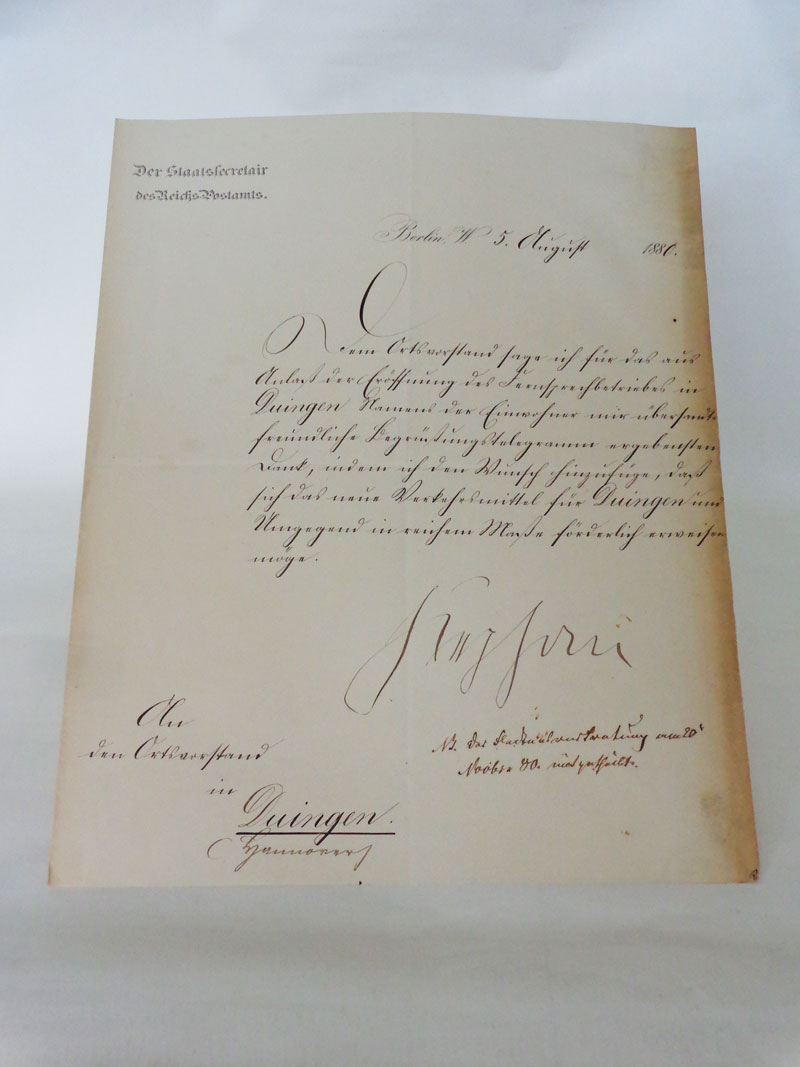 Der Staatssecretair
des Reichs-Postamts.
Berlin, W 5. August 1880.
Dem Ortsvorstand sage ich für das aus
Anlaß der Eröffnung des Fernsprechbetriebes in
Duingen Namens der Einwohner mir übersandte
freundliche Begrüßungstelegramm ergebensten
Dank, indem ich den Wunsch hinzufüge, daß
sich das neue Verkehrsmittel für Duingen und
Umgegend in reichem Maße förderlich erweisen
möge.
Stephan
An
den Ortsvorstand
in
Duingen.
(Hannover)
Der am 20
80. mitgetheilt.